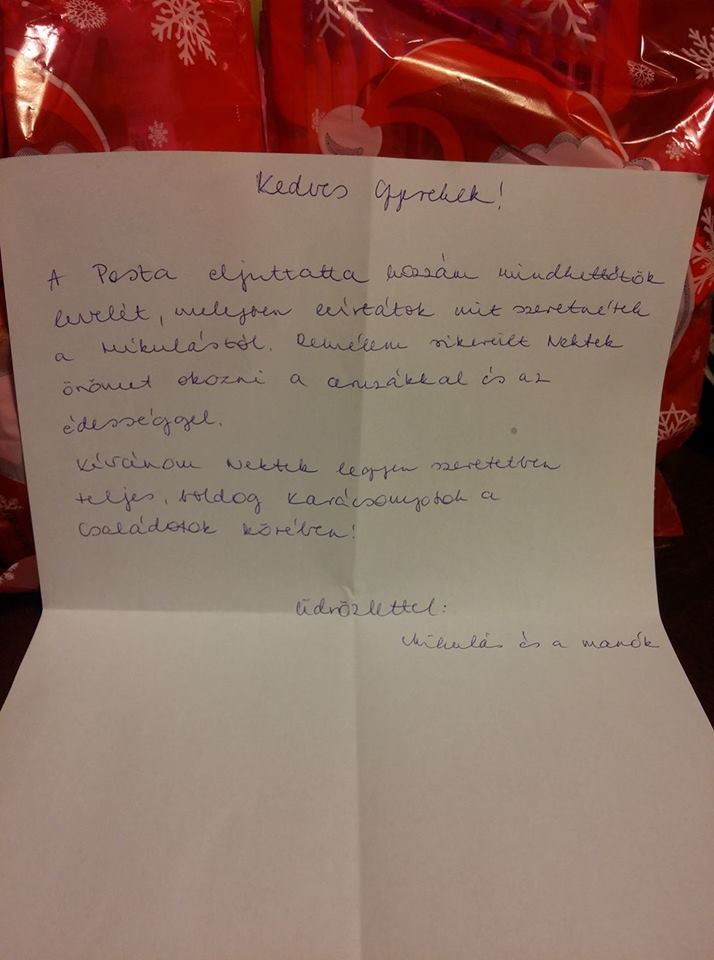 Kedves Gyerekek!
A Posta eljuttatta hozzám mindkettőtök
levelét, melyben leírtátok mit szeretnétek
a Mikulástól. Remélem sikerült Nektek
örömet okozni a cruzákkal és az
édességgel.
Kívánom Nektek legyen szeretetben
teljes, boldog karácsonyotok a
Családotok körében!
Üdvözlettel:
Mikulás és a manók